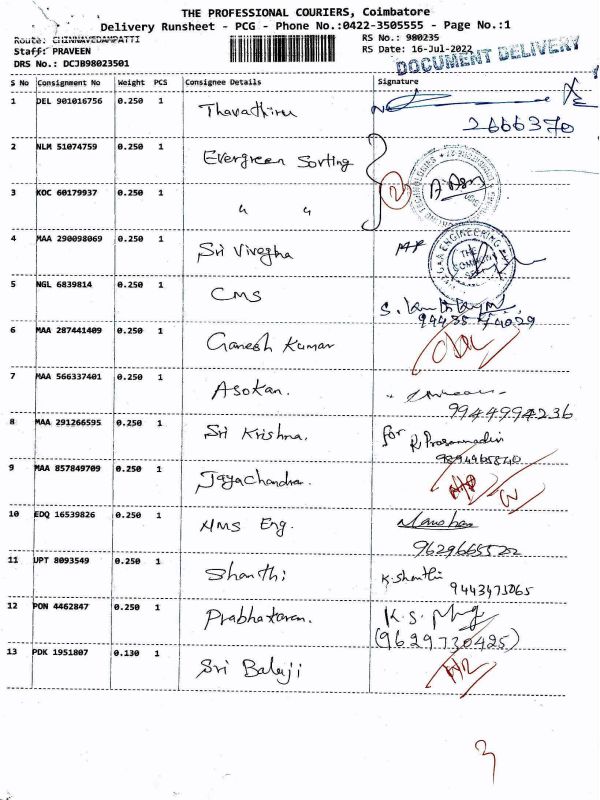 THE PROFESSIONAL COURIERS, Coimbatore
Delivery Runsheet - PCG - Phone No.:0422-3505555 - Page No.:1
Route: CHINNAVEDAMPATTI
RS No.: 980235
Staff: PRAVEEN
RS Date: 16-Jul-2022
DOCUMENT DELIVERY
DRS No.: DCJB98023501
S No Consignment No Weight PCS Consignee Details Signature
1 DEL 901016756 0.250 1 Thavathiru
2666370
2 NLM 51074759 0.250 1 Evergreen Sorting
3 KOC 60179937 0.250 1 " " 2
4 MAA 290098069 0.250 1 Sri Vivegha
ENGINEERING
THE COMMON
5 NGL 6839814 0.250 1 CMS
6 MAA 287441409 0.250 1 Ganesh Kumar
7 MAA 566337401 0.250 1 Asokan.
9944994236
8 MAA 291266595 0.250 1 Sri Krishna. for
9 MAA 857849709 0.250 1 Jayachandran.
10 EDQ 16539826 0.250 1 HMS Eng. Manohar
11 UPT 8093549 0.250 1 Shanthi K. Shanthi
9443473065
12 PON 4462847 0.250 1 Prabhakaran. K.S.
(9629730425)
13 PDK 1951807 0.130 1 Sri Balaji
3